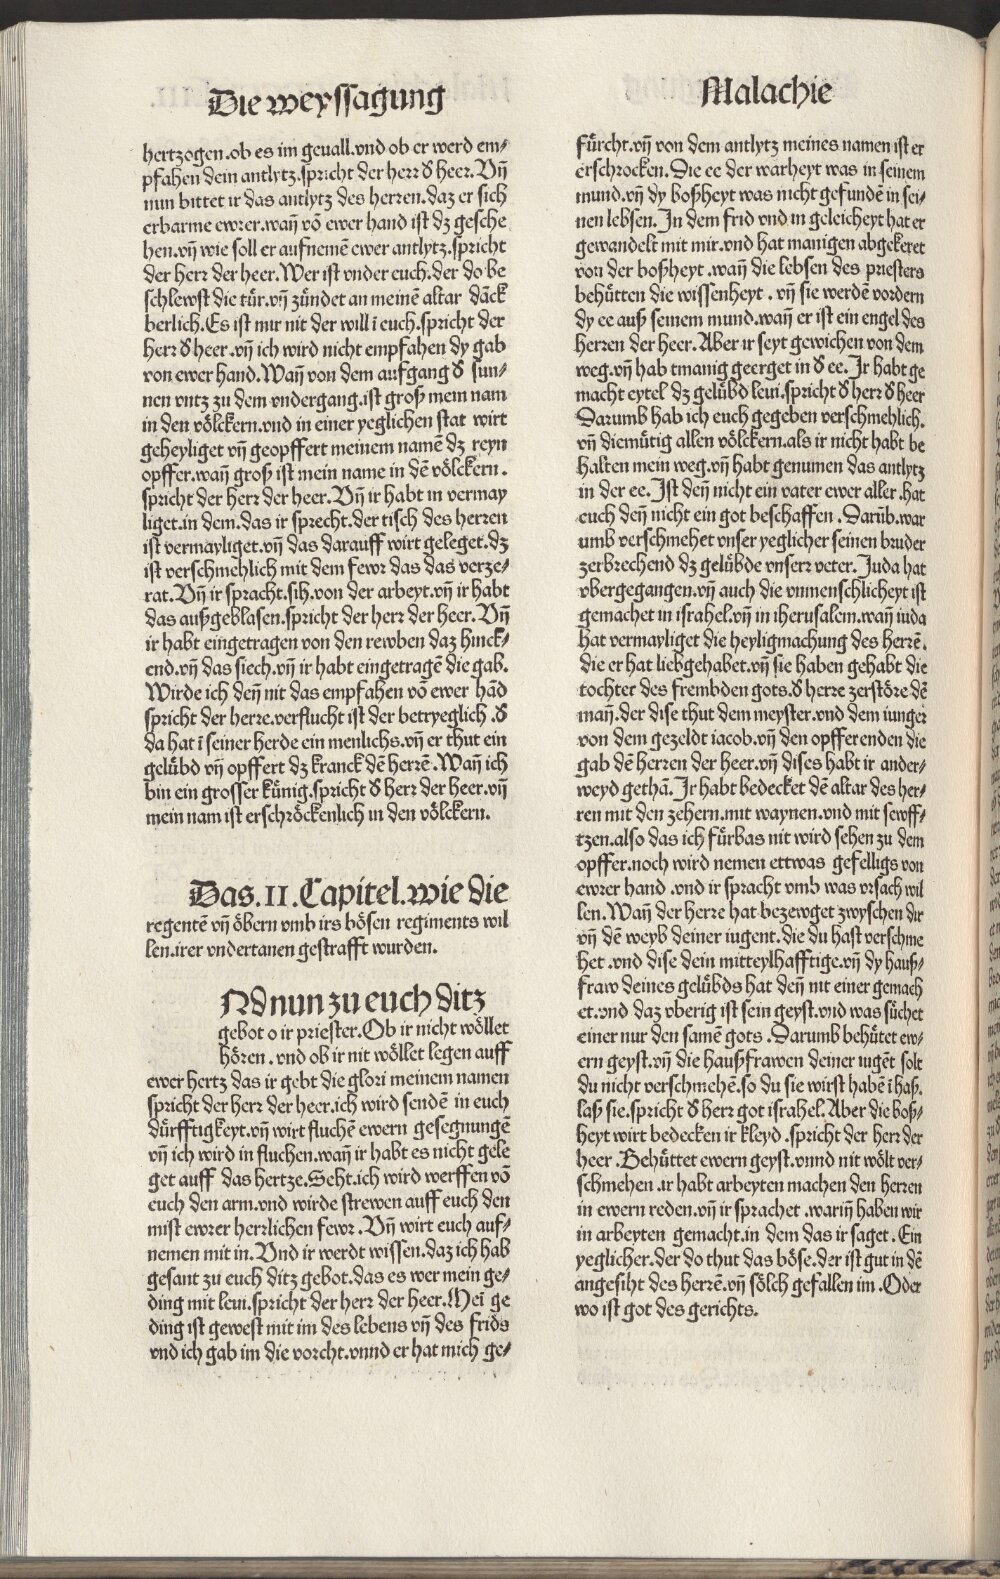 Die weyssagung
Malachie
hertzogen.ob es im geuall.vnd ob er werd em⸗
pfahen dein antlytz.spricht der herr d̕ heer.Vñ
nun bittet ir das antlytz des herren.daz er sich
erbarme ewrer.wañ võ ewer hand ist dz gesche
hen.vñ wie soll er aufnemẽ ewer antlytz.spricht
der herr der heer.Wer ist vnder euch.der do be
schlewst die tür.vñ zündet an meinẽ altar dãck
berlich.Es ist mir nit der will ĩ euch.spricht der
herr d̕ heer.vñ ich wird nicht empfahen dy gab
von ewer hand.Wañ von dem aufgang d̕ sun⸗
nen vntz zu dem vndergang.ist groß mein nam
in den völckern.vnd in einer yeglichen stat wirt
geheyliget vñ geopffert meinem namẽ dz reyn
opffer.wañ groß ist mein name in dẽ völckern.
spricht der herr der heer.Vñ ir habt in vermay
liget.in dem.das ir sprecht.der tisch des herren
ist vermayliget.vñ das darauff wirt geleget.dz
ist verschmehlich mit dem fewr das das verze⸗
rat.Vñ ir spracht.sih.von der arbeyt.vñ ir habt
das außgeblasen.spricht der herr der heer.Vñ
ir habt eingetragen von den rewben daz hinck⸗
end.vñ das siech.vñ ir habt eingetragẽ die gab.
Wirde ich deñ nit das empfahen võ ewer hãd
spricht der herre.verflucht ist der betryeglich.d̕
da hat ĩ seiner herde ein menlichs.vñ er thut ein
gelübd vñ opffert dz kranck dẽ herrẽ.Wañ ich
bin ein grosser künig.spricht d̕ herr der heer.vñ
mein nam ist erschröckenlich in den völckern.
Das.II.Capitel.wie die
regentẽ vñ öbern vmb irs bösen regiments wil
len.irer vndertanen gestrafft wurden.
Nd nun zu euch ditz
gebot o ir priester.Ob ir nicht wöllet
hören.vnd ob ir nit wöllet legen auff
ewer hertz das ir gebt die glori meinem namen
spricht der herr der heer.ich wird sendẽ in euch
dürfftigkeyt.vñ wirt fluchẽ ewern gesegnungẽ
vñ ich wird in fluchen.wañ ir habt es nicht gele
get auff das hertze.Seht.ich wird werffen võ
euch den arm.vnd wirde strewen auff euch den
mist ewrer herrlichen fewr.Vñ wirt euch auf⸗
nemen mit in.Vnd ir werdt wissen.daz ich hab
gesant zu euch ditz gebot.das es wer mein ge⸗
ding mit leui.spricht der herr der heer.Meĩ ge
ding ist gewest mit im des lebens vñ des frids
vnd ich gab im die vorcht.vnnd er hat mich ge⸗
fürcht.vñ von dem antlytz meines namen ist er
erschrocken.Die ee der warheyt was in seinem
mund.vñ dy boßheyt was nicht gefundẽ in sei⸗
nen lebsen.In dem frid vnd in geleicheyt hat er
gewandelt mit mir.vnd hat manigen abgekeret
von der boßheyt.wañ die lebsen des priesters
behütten die wissenheyt.vñ sie werdẽ vordern
dy ee auß seinem mund.wañ er ist ein engel des
herren der heer.Aber ir seyt gewichen von dem
weg.vñ hab tmanig geerget in d̕ ee.Ir habt ge
macht eytel dz gelübd leui.spricht d̕ herr d̕ heer
Darumb hab ich euch gegeben verschmehlich.
vñ diemütig allen völckern.als ir nicht habt be
halten mein weg.vñ habt genumen das antlytz
in der ee.Ist deñ nicht ein vater ewer aller.hat
euch deñ nicht ein got beschaffen.Darũb.war
umb verschmehet vnser yeglicher seinen bruder
zerbrechend dz gelübde vnserr veter.Juda hat
vbergegangen.vñ auch die vnmenschlicheyt ist
gemachet in israhel.vñ in iherusalem.wañ iuda
hat vermayliget die heyligmachung des herrẽ.
die er hat liebgehabet.vñ sie haben gehabt die
tochter des frembden gots.d̕ herre zerstöre dẽ
mañ.der dise thut dem meyster.vnd dem iunger
von dem gezeldt iacob.vñ den opfferenden die
gab dẽ herren der heer.vñ dises habt ir ander⸗
weyd gethã.Ir habt bedecket dẽ altar des her⸗
ren mit den zehern.mit waynen.vnd mit sewff⸗
tzen.also das ich fürbas nit wird sehen zu dem
opffer.noch wird nemen ettwas gefelligs von
ewrer hand.vnd ir spracht vmb was vrsach wil
len.Wañ der herre hat bezewget zwyschen dir
vñ dẽ weyb deiner iugent.die du hast verschme
het.vnd dise dein mitteylhafftige.vñ dy hauß⸗
fraw deines gelübds hat deñ nit einer gemach
et.vnd daz vberig ist sein geyst.vnd was süchet
einer nur den samẽ gots.Darumb behütet ew⸗
ern geyst.vñ die haußfrawen deiner iugẽt solt
du nicht verschmehẽ.so du sie wirst habẽ ĩ haß.
laß sie.spricht d̕ herr got israhel.Aber die boß⸗
heyt wirt bedecken ir kleyd.spricht der herr der
heer.Behüttet ewern geyst.vnnd nit wölt ver⸗
schmehen.ir habt arbeyten machen den herren
in ewern reden.vñ ir sprachet.wariñ haben wir
in arbeyten gemacht.in dem das ir saget.Ein
yeglicher.der do thut das böse.der ist gut in dẽ
angesiht des herrẽ.vñ sölch gefallen im.Oder
wo ist got des gerichts.